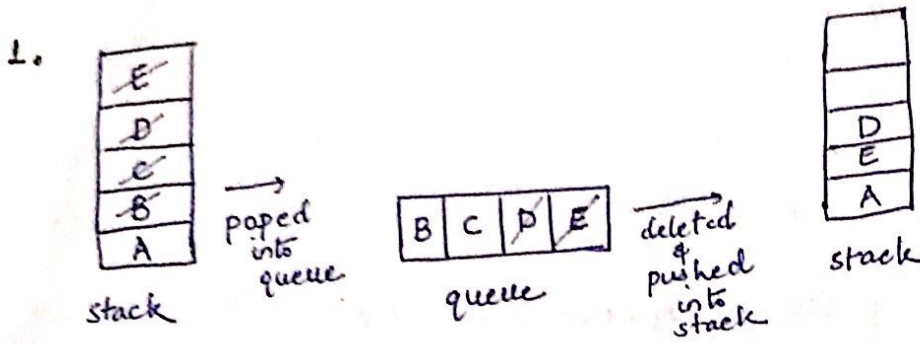 1.
E
D
C
B
A
stack
poped
into
queue
B C D E
queue
deleted
&
pushed
into
stack
D
E
A
stack